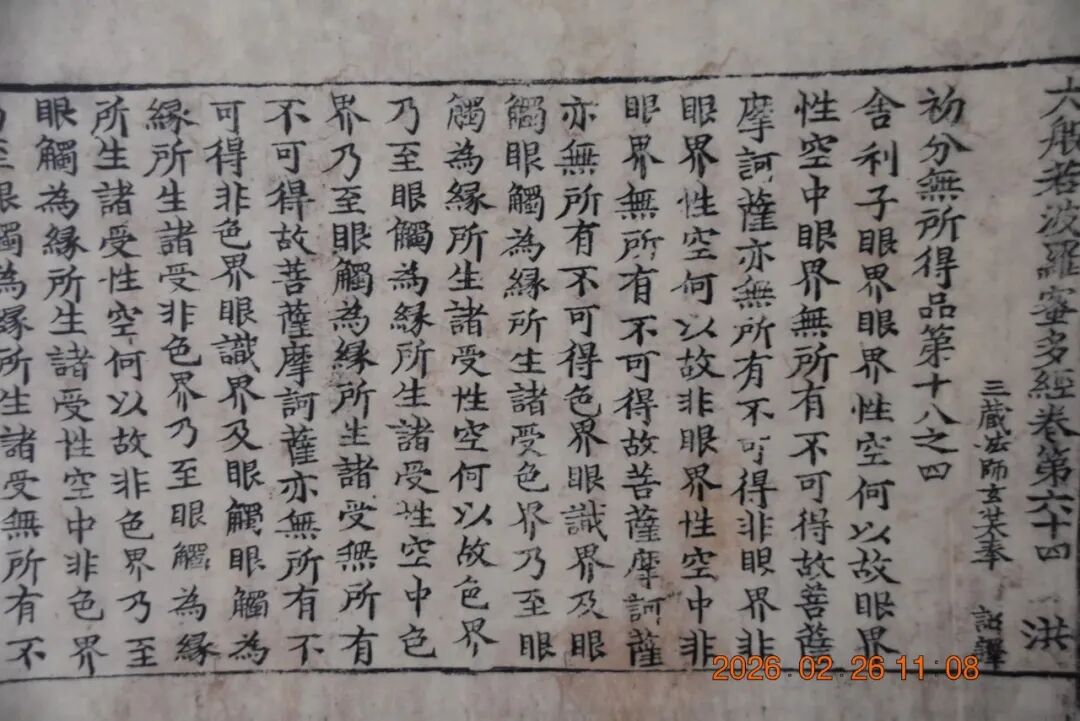 大般若波羅蜜多經卷第六十四 洪
三藏法師玄奘奉 詔譯
初分無所得品第十八之四
舍利子眼界眼界性空何以故眼界
性空中眼界無所有不可得故菩薩
摩訶薩亦無所有不可得非眼界非
眼界性空何以故非眼界性空中非
眼界無所有不可得故菩薩摩訶薩
亦無所有不可得色界眼識界及眼
觸眼觸為緣所生諸受色界乃至眼
觸為緣所生諸受性空何以故色界
乃至眼觸為緣所生諸受性空中色
界乃至眼觸為緣所生諸受無所有
不可得故菩薩摩訶薩亦無所有不
可得非色界眼識界及眼觸眼觸為
緣所生諸受非色界乃至眼觸為緣
所生諸受性空何以故非色界乃至
眼觸為緣所生諸受性空中非色界
乃至眼觸為緣所生諸受無所有不
2026.02.26 11:08